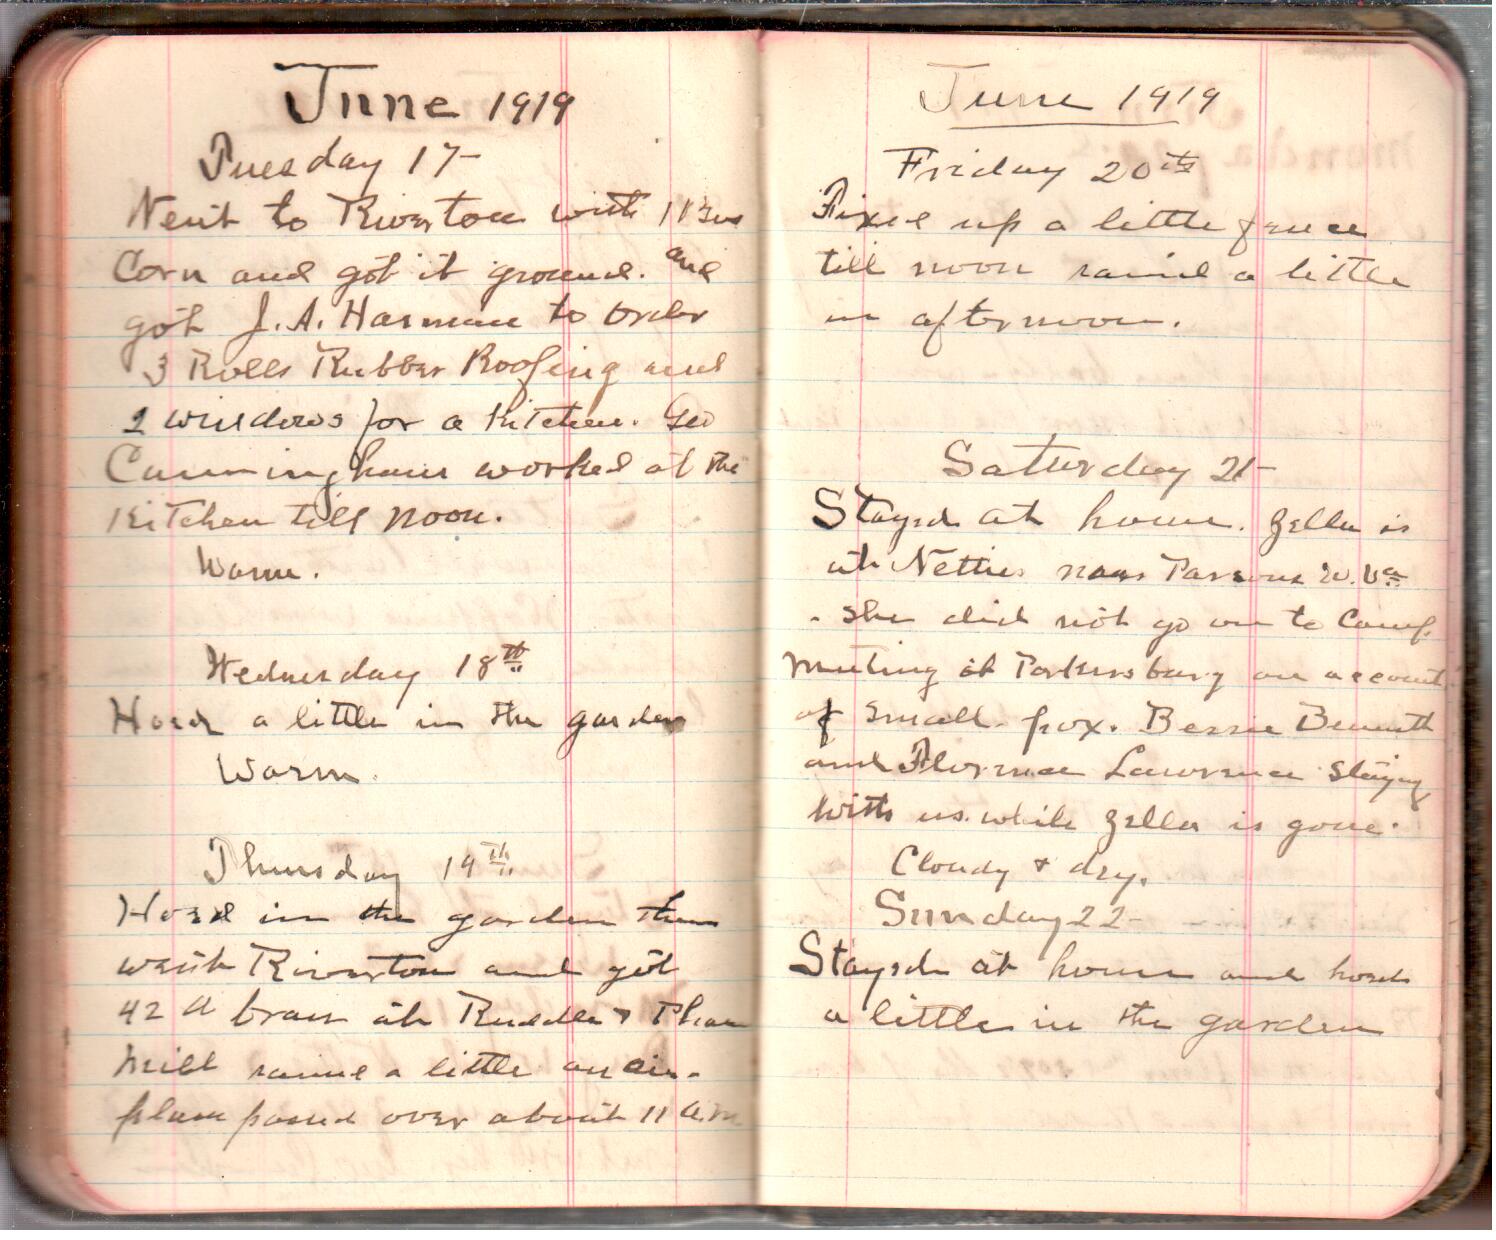 June 1919
Tuesday 17-
Went to Riverton with 1 Bus
Corn and got it ground. and
got J. A. Harman to order
3 Rolls Rubber Roofing and
2 windows for a Kitchen. Geo
Cunningham worked at the
Kitchen till noon.
Warm.
Wednesday 18th
Hoed a little in the garden
Warm.
Thursday 19th
Hoed in the garden then
went Riverton and got
42 # bran at Ruddle &
Mill rained a little an air-
plane passed over about 11 a.m
June 1919
Friday 20th
Fixed up a little fence
till noon rained a little
in afternoon.
Saturday 21-
Stayed at home. Zella is
at Netties near Parsons W. Va
. She did not go on to Camp
Meeting at Parkersburg on account
of Small pox. Bessie Bennett
and Florence Lawrence staying
with us while Zella is gone.
Cloudy & dry.
Sunday 22-
Stayed at home and hoed
a little in the garden